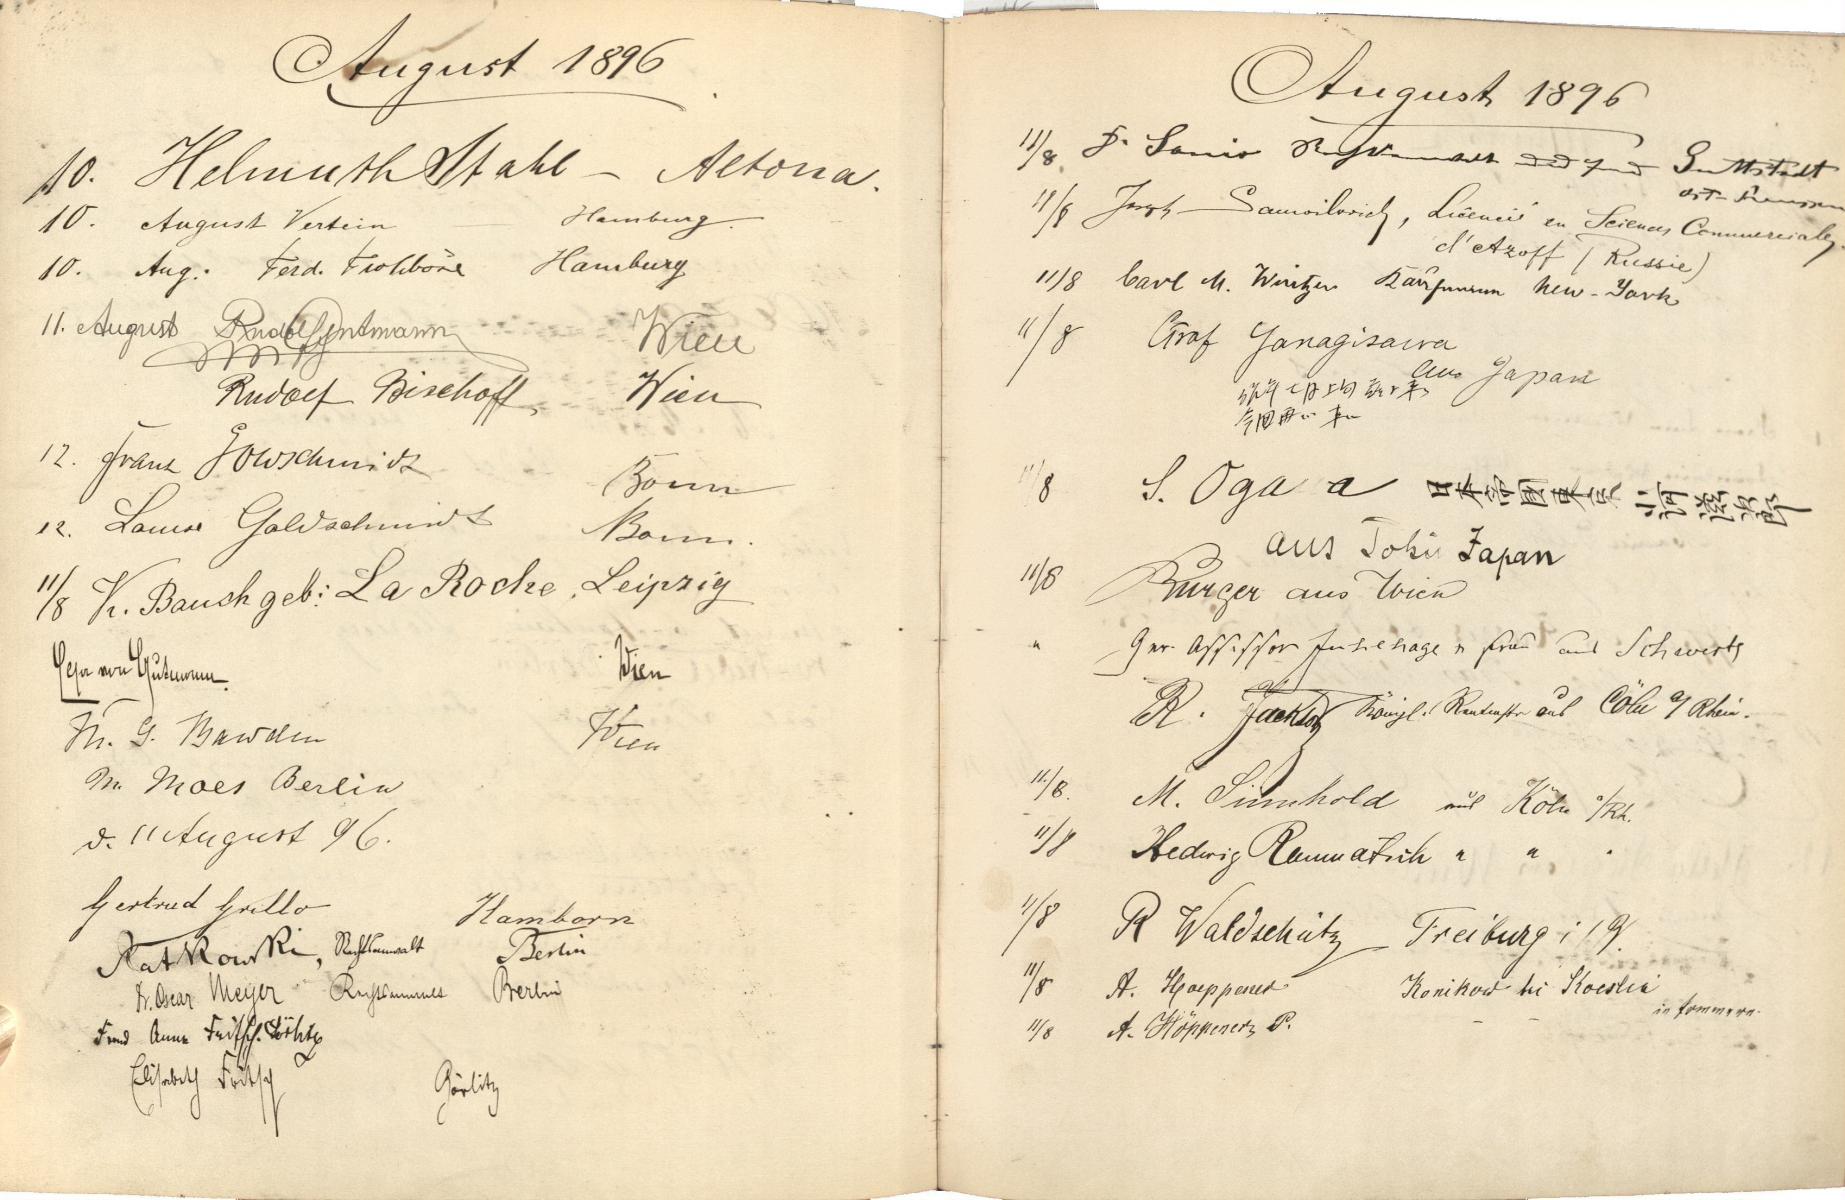 August 1896
10. Helmuth Stahl – Altona.
10. August Vertein — Hamburg.
10. Aug. Ferd. Frohböse Hamburg
11. August Rudolf Gutmann Wien
Rudolf Bischoff, Wien
12. Franz Goldschmidt Bonn
12. Louise Goldschmidt Bonn.
11/8 K. Bausch geb: La Roche, Leipzig
von Gutmann. Wien
G. Bawden Wien
M. Moes Berlin
d. 11 August 96.
Gertrud Grillo Hamborn
Katkowski, Rechtsanwalt Berlin
Dr. Oscar Meyer Rechtsanwalt Berlin
Anna Fritsch
Elisabeth Fritsch Görlitz
August 1896
11/8 F. Sanio Guttstadt
Ost-Preussen
11/8 Joseph Samoilovich, Licencié en Sciences Commerciales
d'Azoff (Russie)
11/8 Carl M. Wintzer Kaufmann New-York
11/8 Graf Yanagisawa
aus Japan
11/8 S. Oga a 日本帝國東京 小河滋次郎
aus Tokio Japan
11/8 Burger aus Wien
" Ger. Assessor Frau aus Schwerte
R. Königl. aus Cöln a/Rhein.
11./8. M. Simhold aus Köln a/Rh.
11/8 Hedwig " " "
11/8 R Waldschütz Freiburg i/B.
11/8 A. Hoeppener Konikow bei Koeslin
in Pommern.
11/8 A. Höppener P. – –